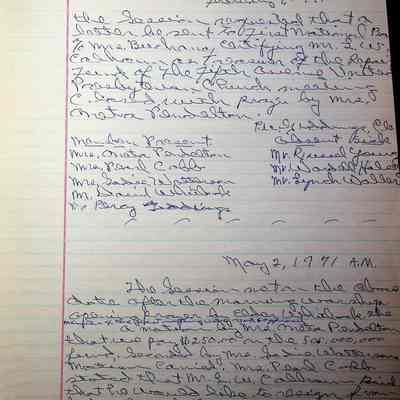 the Session requested that a
letter be sent to First National Ba
% Mrs. Buchana, certifying Mr. E. W.
Calhoun as Treasurer of the Repair
Fund of the Fifth Avenue United
Presbyterian Church meeting
Closed with prayer by Mrs.
Metra Pendelton.
Members Present
Mrs. Metra Pendelton
Mrs. Pearl Cobb
Mrs. Sadie Watterson
M. David
Percy Giddings
Absent Sick
Mr. Russell
Mr.
Mr. Lynch
May 2, 1971 A.M.
The Session met on the above
date after the morning worship
opening prayer by Elder
a motion by Mrs. Metra Pendelton
that we pay $250.00 on the $50,000.000
fund, Second by Mrs. Sadie Watterson
Motion Carried. Mrs. Pearl Cobb
stated that Mr. E. W. Calhoun said
that he would like to resign from